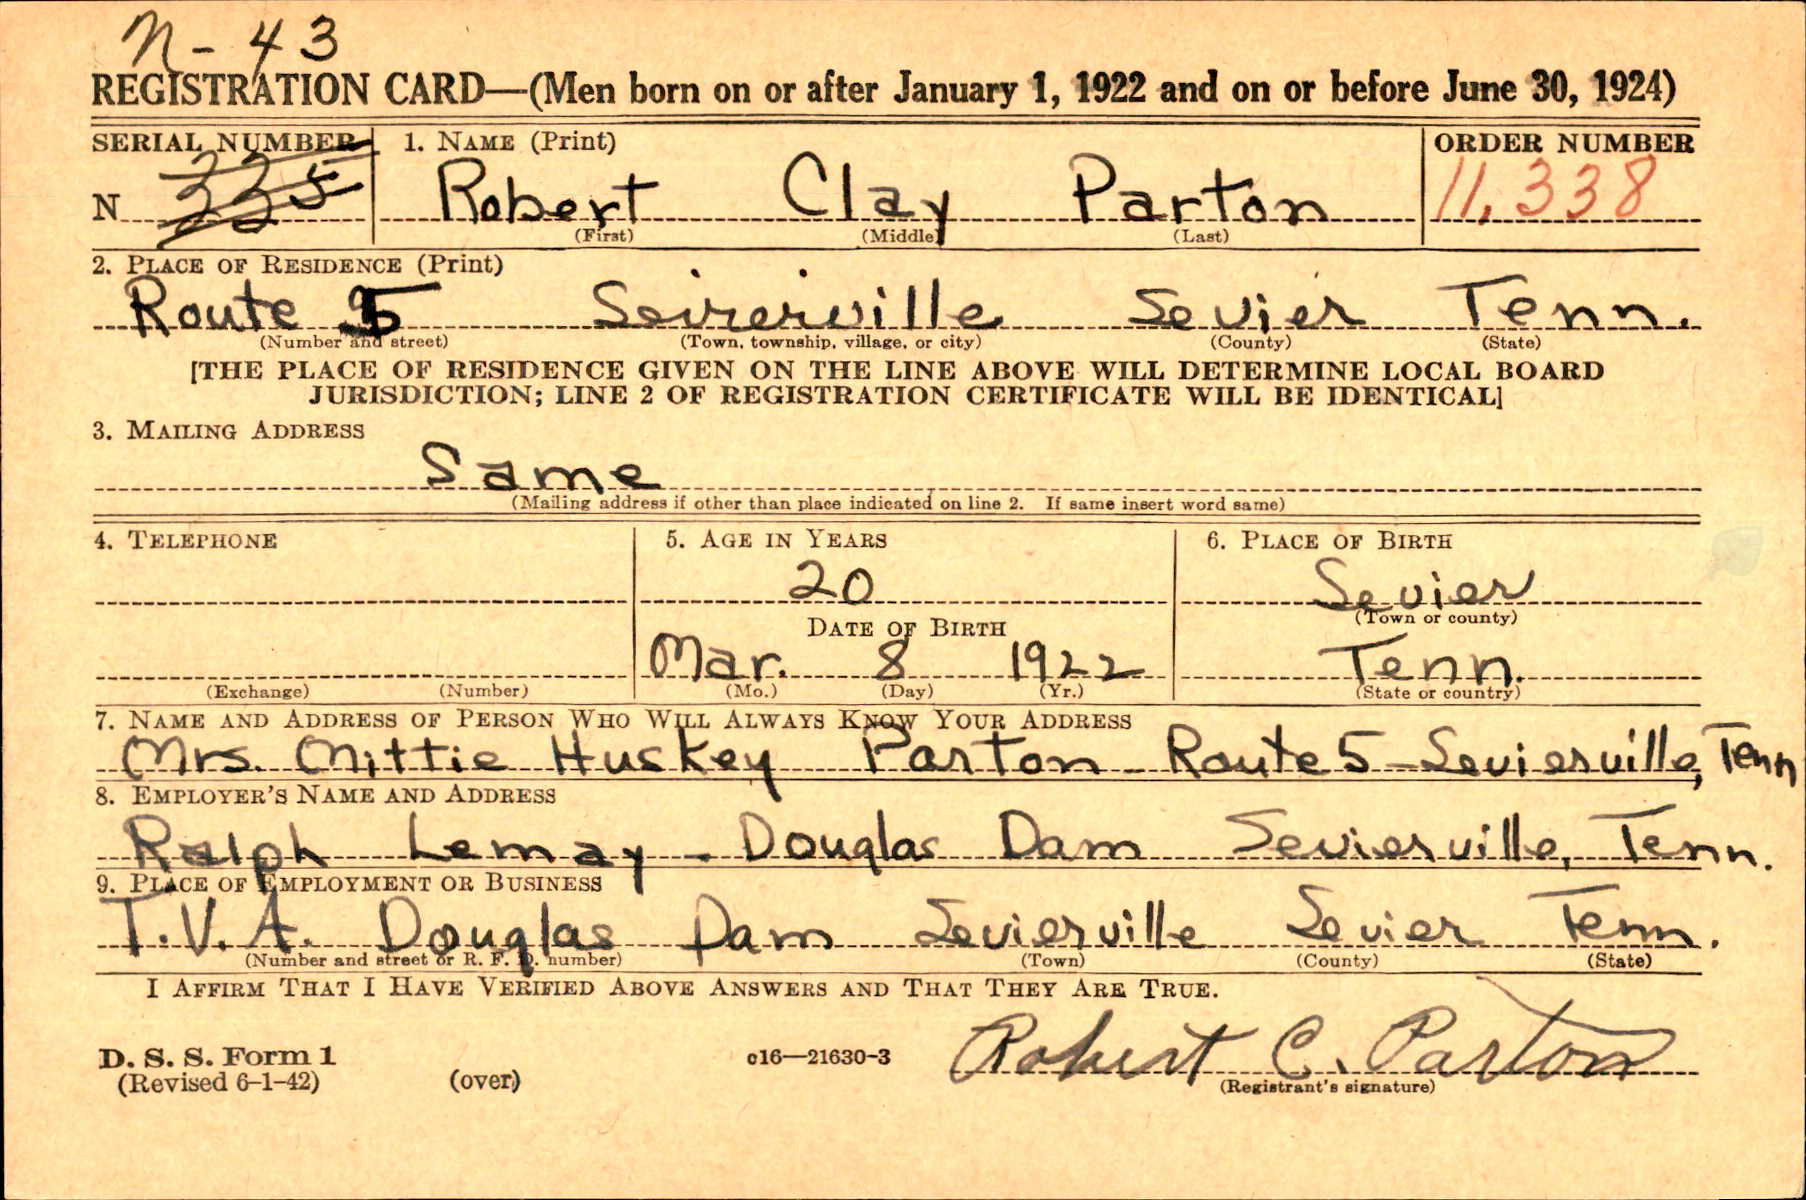 N-43
REGISTRATION CARD—(Men born on or after January 1, 1922 and on or before June 30, 1924)
SERIAL NUMBER
1. NAME (Print)
ORDER NUMBER
N 335 Robert Clay Parton 11,338
(First) (Middle) (Last)
2. PLACE OF RESIDENCE (Print)
Route 5 Seivierville Sevier Tenn.
(Number and street) (Town, township, village, or city) (County) (State)
[THE PLACE OF RESIDENCE GIVEN ON THE LINE ABOVE WILL DETERMINE LOCAL BOARD
JURISDICTION; LINE 2 OF REGISTRATION CERTIFICATE WILL BE IDENTICAL]
3. MAILING ADDRESS
Same
(Mailing address if other than place indicated on line 2. If same insert word same)
4. TELEPHONE
5. AGE IN YEARS
6. PLACE OF BIRTH
20
Sevier
(Town or county)
DATE OF BIRTH
Mar. 8 1922
Tenn.
(Exchange) (Number)
(Mo.) (Day) (Yr.)
(State or country)
7. NAME AND ADDRESS OF PERSON WHO WILL ALWAYS KNOW YOUR ADDRESS
Mrs. Mittie Huskey Parton - Route 5 - Sevierville, Tenn
8. EMPLOYER'S NAME AND ADDRESS
Ralph Lemay - Douglas Dam Sevierville, Tenn.
9. PLACE OF EMPLOYMENT OR BUSINESS
T.V.A. Douglas Dam Sevierville Sevier Tenn.
(Number and street or R. F. D. number) (Town) (County) (State)
I AFFIRM THAT I HAVE VERIFIED ABOVE ANSWERS AND THAT THEY ARE TRUE.
D. S. S. Form 1
(Revised 6-1-42) (over)
c16—21630-3
Robert C. Parton
(Registrant's signature)